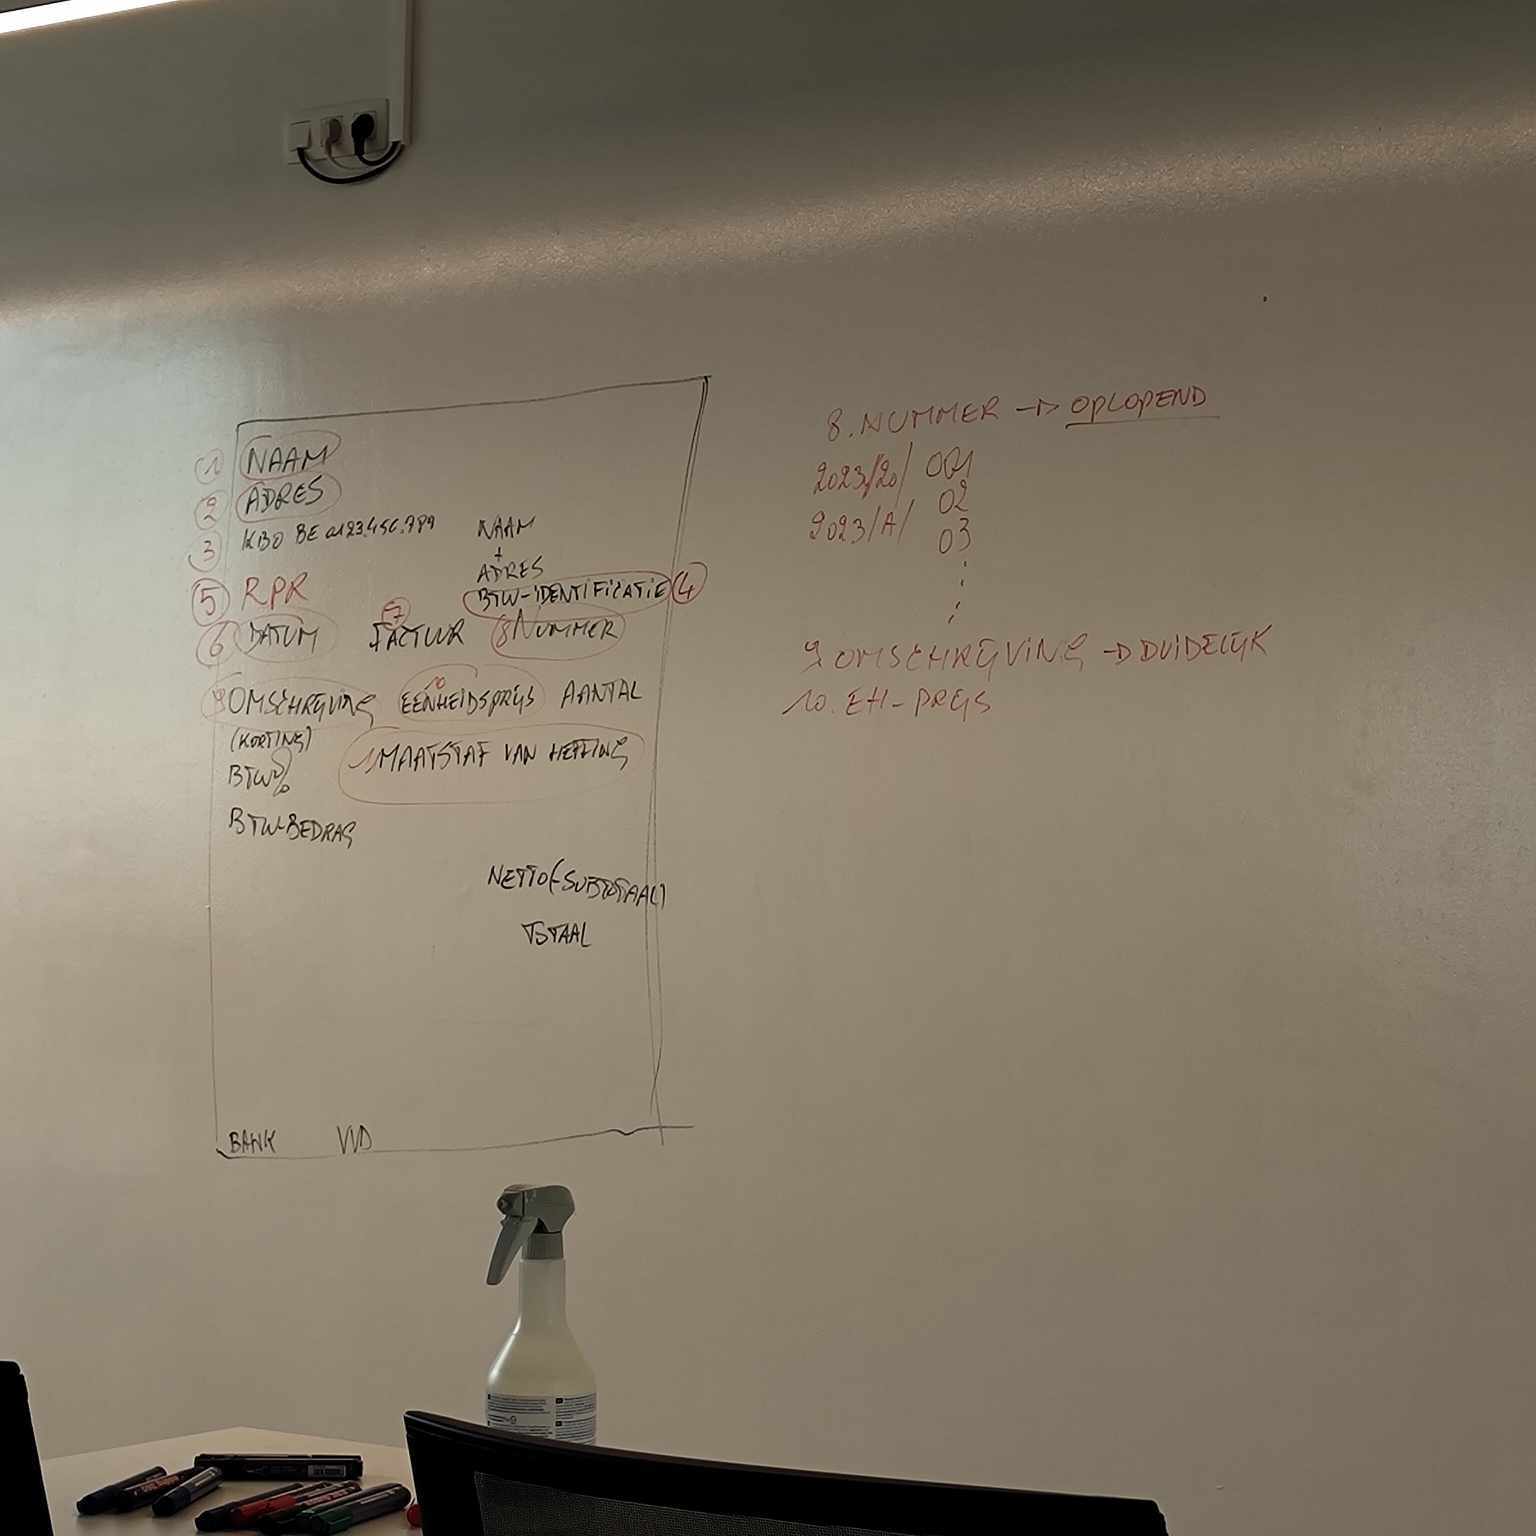 1 NAAM
2 ADRES
3 KBO BE 0123.456.789
NAAM
+
ADRES
BTW-IDENTIFICATIE 4
5 RPR
6 DATUM 7 FACTUUR 8 NUMMER
9 OMSCHRIJVING 10 EENHEIDSPRIJS AANTAL
(KORTING)
11 MAATSTAF VAN HEFFING
BTW%
BTW-BEDRAG
NETTO (=SUBTOTAAL)
TOTAAL
BANK VVD
8. NUMMER → OPLOPEND
2023/20/ 001
02
2023/A/
03
:
9 OMSCHRIJVING → DUIDELIJK
10. EH-PRIJS